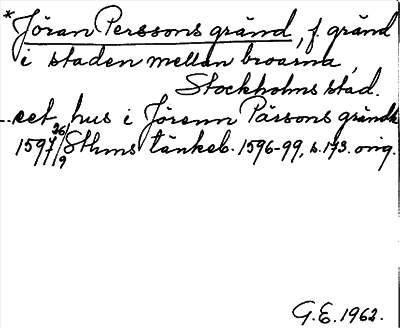 *Jöran Perssons gränd, f. gränd
i staden mellan broarna,
Stockholms stad.
..eet hus i Jörenn Pärsons grändh
1597 26/9 Sthms tänkeb. 1596-99, s. 173. orig.
G.E. 1962.